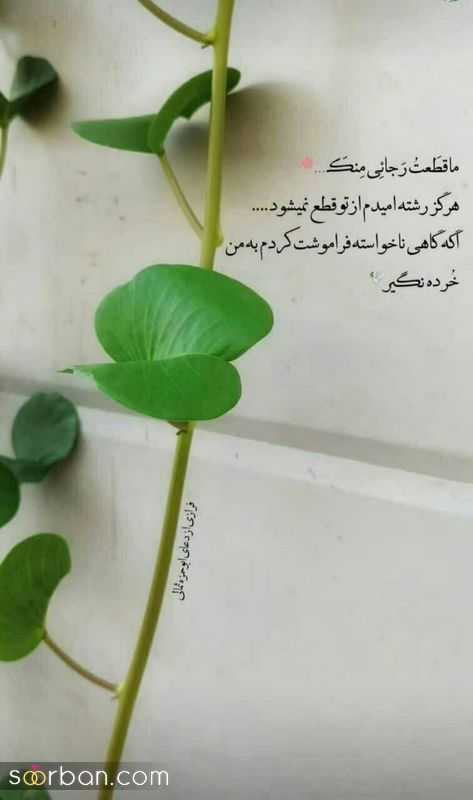 ماقَطَعتُ رَجائِی مِنکَ...🌸
هرگز رشته امیدم از تو قطع نمیشود....
اگه گاهی ناخواسته فراموشت کردم به من
خُرده نگیر🕊
فرازی از دعای ابوحمزه ثمالی
soorban.com